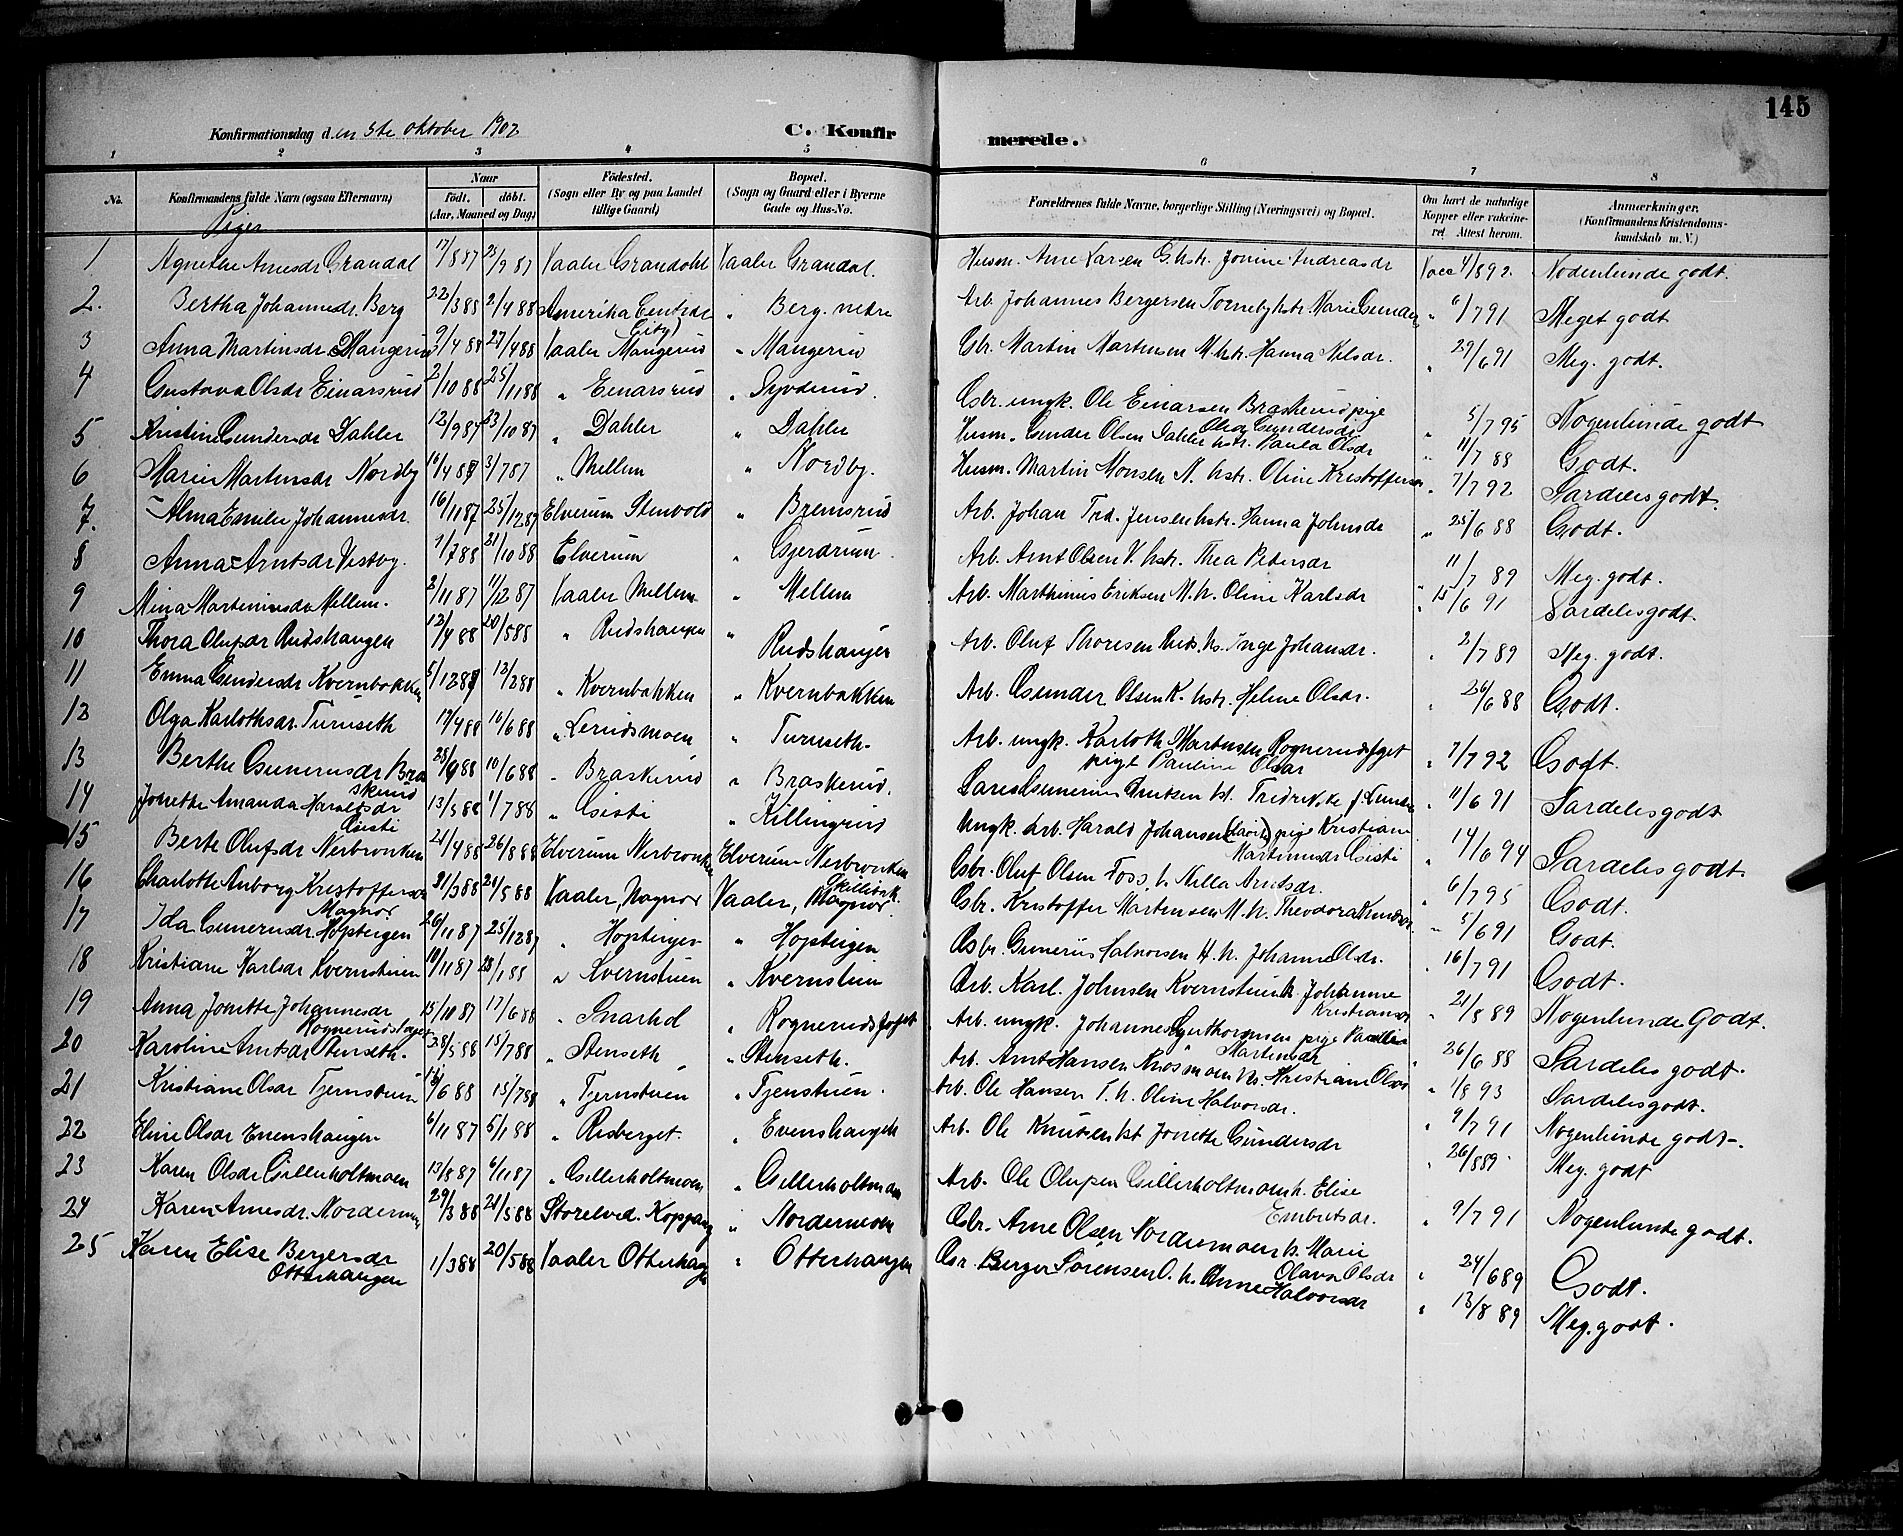 145
Konfirmationsdag den 5te Oktober 1902
C. Konfir merede.
1 2 3 4 5 6 7 8
No. Konfirmandens fulde Navn (ogsaa Efternavn) Naar født. døbt. (Aar, Maaned og Dag) Fødested. (Sogn eller By og paa Landet tillige Gaard) Bopæl. (Sogn og Gaard eller i Byerne Gade og Hus-No. Forældrenes fulde Navne, borgerlige Stilling (Næringsvei) og Bopæl. Om havt de naturlige Kopper eller vakcineret. Attest herom. Anmærkninger. (Konfirmandens Kristendomskundskab m. V.)
Piger
1 Agnethe Arnesdr Grandal 17/8 87 25/9 87 Vaaler Grandahl Vaaler Grandal. Husm. Arne Larsen G. hstr. Jonine Andreasdr Vacc 4/8 92. Nodenlunde godt.
2. Bertha Johannesdr. Berg 22/3 88 2/4 88 Amerika (Central City) " Berg nedre Arb. Johannes Bergersen Torneby hstr. Marie " 6/7 91 Meget godt
3 Anna Martinsdr Mangerud 9/4 88 27/4 88 Vaaler Mangerud " Mangerud Gbr. Martin Martinsen M. hstr. Hanna Nilsdr. " 29/6 91 Meg. godt.
4 Gustava Olsdr Einarsrud 2/10 88 25/11 88 " Einarsrud " Gbr. ungk. Ole Einarsen Braskerud pige Gundersdr " 5/7 95 Nogenlunde godt
5 Kristine Gundersdr Dahler 12/9 87 23/10 87 " Dahler " Dahler Husm. Gunder Olsen Dahler hstr. Paula Olsdr " 11/7 88 Godt.
6 Marie Martinsdr Nordby 16/4 87 3/7 87 " Mellem " Nordby. Husm. Martin Monsen N. hstr. Oline Kristoffersdr " 7/7 92 Særdeles godt.
7. Alma Emilie Johannesdr. 16/11 87 25/12 87 Elverum Stenvold " Bremsrud Arb. Johan Fred. Jensen hstr. Hanna Johnsdr " 25/6 88 Godt.
8 Anna Arntsdr Vestby. 9/7 88 21/10 88 Elverum " Gjerdrum Arb. Arnt Olsen V. hstr. Thea Pedersdr " 11/7 89 Meg. godt.
9 Mina Martinusdr Mellem. 2/11 87 11/12 87 Vaaler Mellem " Mellem Arb. Marthinus Eriksen M. h. Oline Karlsdr " 15/6 91 Særdeles godt.
10 Thora Olufsdr Rudshaugen 12/4 88 20/5 88 " Rudshaugen " Rudshaugen Arb. Oluf Thoresen Ruds. hs. Inge Johansdr. " 2/7 89 Meg. godt.
11 Emma Gundersdr Kvernbakken 5/12 87 12/2 88 " Kvernbakken " Kvernbakken Arb. Gunder Olsen K. hstr. Helene Olsdr. " 26/6 88 Godt.
12 Olga Karlothsdr. Turuseth 17/4 88 16/6 88 " Lerudsmoen " Turuseth. Arb. ungk. Karloth Martinsen Rognerudsfjget pige Pauline Olsdr " 7/7 92 Godt.
13 Berthe Gunerusdr Braskerud 28/4 88 10/6 88 " Braskerud " Braskerud. Gunerius Knutsen hst. Fredrikke " 11/6 91 Særdeles godt
14 Jonette Amanda Haraldsdr Gisti 13/5 88 1/7 88 " Gisti " Killingrud Ungk. Arb. Harald Johansen pige Kristiane Martinusdr Gisti " 14/6 94 Særdeles godt.
15 Berte Olufsdr Nesbronken 21/4 88 26/8 88 Elverum Nesbronken Elverum Nesbronken Gbr. Oluf Olsen Foss, h. Nella Arntsdr. " 6/7 95 Godt.
16 Charlotte Anborg Kristoffersdr Magnor 21/3 88 21/5 88 Vaaler, Magnor Vaaler, Magnor. Gbr. Kristoffer Martinsen M. h. Theodora Knudsdr " 5/6 91 Godt.
17 Ida Gunerusdr Hopsteigen 26/11 87 25/12 87 " Hopsteigen " Hopsteigen Gbr. Gunerius Halvorsen H. h. Johanne Olsdr. " 16/7 91 Godt.
18 Kristiane Karlsdr Kvernstuen 10/11 87 28/1 88 " Kvernstuen " Kvernstuen Arb. Karl Johnsen Kvernstuen h. Johanne Kristiansdr " 21/8 89 Nogenlunde Godt.
19 Anna Jonette Johannesdr 15/10 87 17/6 88 " Snarhol " Arb. ungk. Johannes pige Martinsdr " 26/6 88 Særdeles godt.
20 Karoline Arntsdr Stenseth. 28/5 88 15/7 88 " Stenseth " Stenseth. Arb. Arnt Hansen h. Kristiane Olsdr " 1/8 93 Særdeles godt.
21 Kristiane Olsdr Tjernstuen 6 88 15/7 88 " Tjernstuen " Tjenstuen. Arb. Ole Hansen T. h. Oline Halvorsdr. " 9/7 91 Nogenlunde godt.
22 Eline Olsdr Evenshaugen 6/11 87 5/1 88 " Risberget. " Evenshaugen Arb. Ole Knutsen hst Jonette Gundersdr " 26/8 89 Meg. godt
23 Karen Olsdr Gillerholtmoen 13/8 87 6/11 87 " Gillerholtmoen " Gillerholtmoen Arb. Ole Olufsen Gillerholtmoen h. Elise Embretsdr. " 9/7 91 Nogenlunde godt.
24 Karen Arnesdr. Nordermoen 29/3 88 21/5 88 Storelved. Koppang " Nordermoen Gbr. Arne Olsen Nordermoen h. Marie Olava Olsdr " 24/6 89 Godt.
25 Karen Elise Bergersdr Otterhaugen 1/3 88 20/5 88 Vaaler Otterhaugen " Otterhaugen Gbr. Berger Sørensen O. h. Anne Halvorsdr " 13/8 89 Meg. godt.